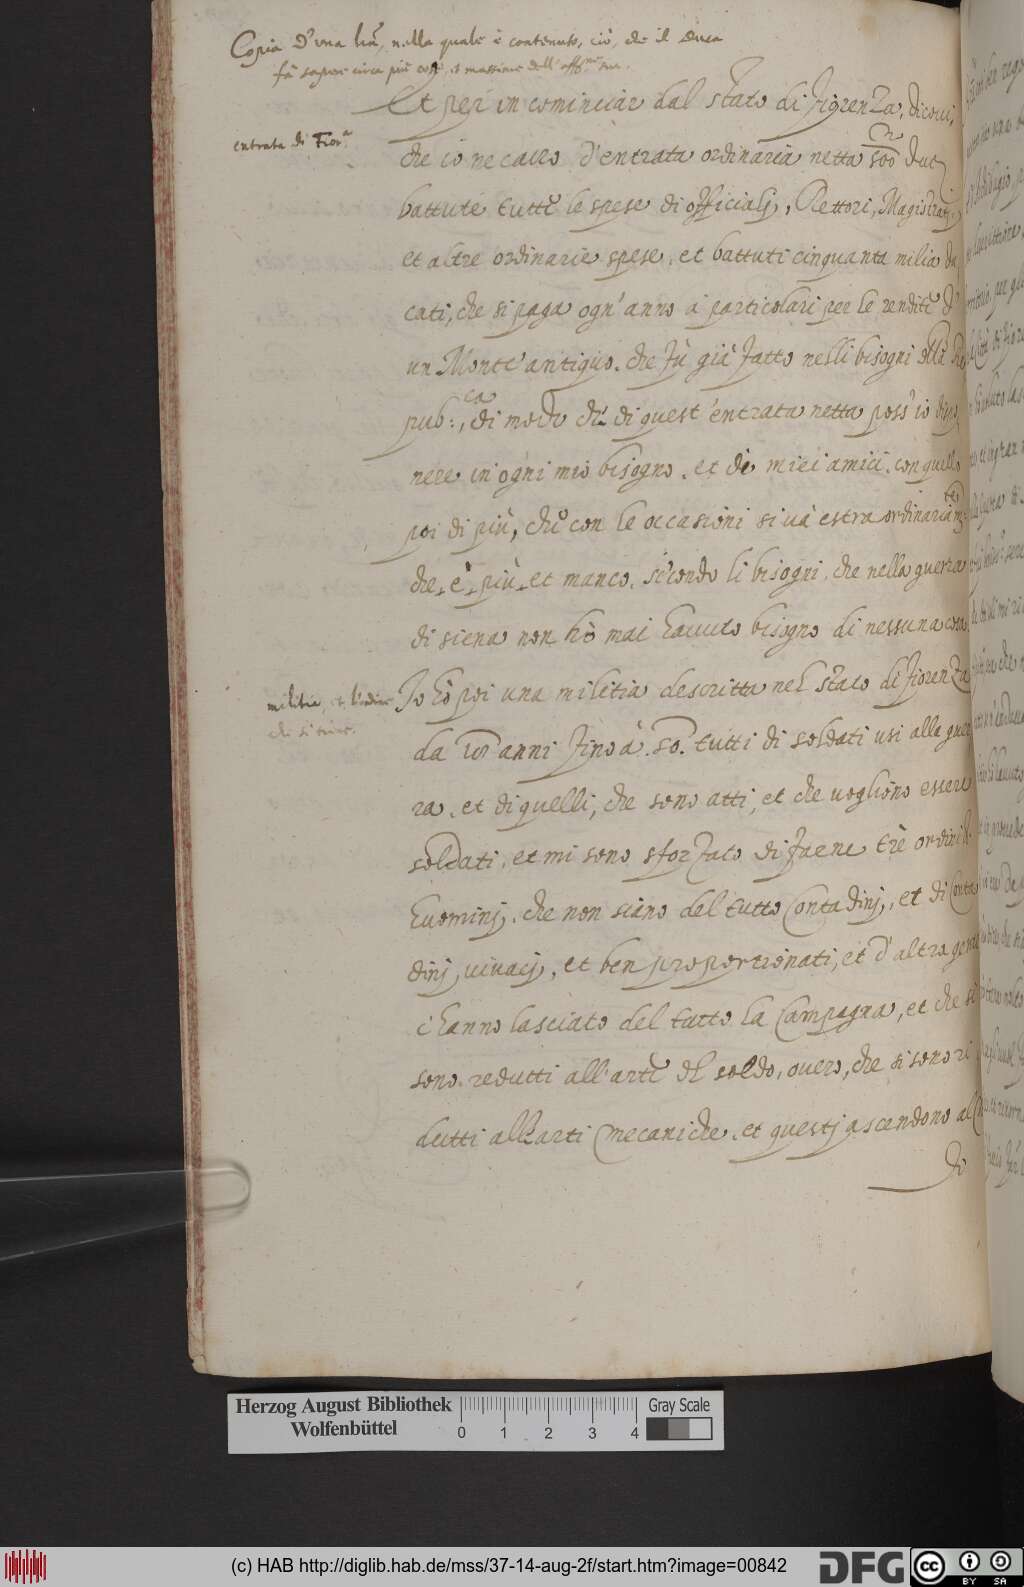 Copia d'una lra, nella quale è contenuto, ciò, che il Duca
fà sapere circa più cose, et massime dell'
Et per incominciar dal stato di Fiorenza, dicoui,
entrata di Fior.a
che io ne cauo d'entrata ordinaria netta 500 duc
battute tutte le spese di officialj, Rettori, Magistrati,
et altre ordinarie spese, et battuti cinquanta milia du
cati, che si paga ogn'anno à particolari per le rendite d'
un Monte antiquo, che fù già fatto nelli bisogni della Re
pub:ca, di modo che di quest'entrata netta poss'io dispo
nere in ogni mio bisogno, et de miei amici, con quello
poi di più, che con le occasioni si uà estraordinariam.te
che è più, et manco, secondo li bisogni, che nella guerra
di siena non hò mai hauuto bisogno di nessuna cosa.
militia, et l'ordine
che si tiene.
Io hò poi una militia descritta nel stato di Fiorenza
da anni fino à 50. tutti di soldati usi alla guer
ra, et di quelli, che sono atti, et che uogliono essere
soldati, et mi sono sforzato di farne tre ordini d'
huominj, che non siano del tutto Contadinj, et di Conta
dinj uiuacj, et ben proportionati, et d'altra gente
c'hanno lasciato del tutto la Campagna, et che si
sono redutti all'arte del soldo, ouero, che si sono ri
dutti all'arti mecaniche, et questj ascendono al
Herzog August Bibliothek
Wolfenbüttel
0 1 2 3 4
Gray Scale
(c) HAB http://diglib.hab.de/mss/37-14-aug-2f/start.htm?image=00842
DFG
cc BY SA